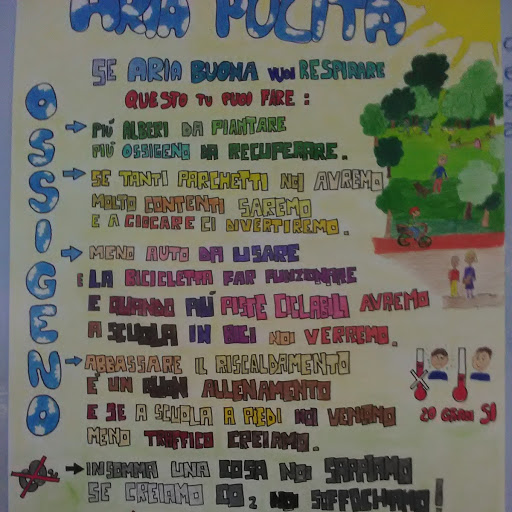 ARIA PULITA
SE ARIA BUONA VUOI RESPIRARE
QUESTO TU PUOI FARE:
OSSIGENO
PIÚ ALBERI DA PIANTARE
PIÚ OSSIGENO DA RECUPERARE.
SE TANTI PARCHETTI NOI AVREMO
MOLTO CONTENTI SAREMO
E A GIOCARE CI DIVERTIREMO.
MENO AUTO DA USARE
E LA BICICLETTA FAR FUNZIONARE
E QUANDO PIÚ PISTE CICLABILI AVREMO
A SCUOLA IN BICI NOI VERREMO.
ABBASSARE IL RISCALDAMENTO
E' UN BUON ALLENAMENTO
E SE A SCUOLA A PIEDI NOI VENIAMO
MENO TRAFFICO CREIAMO.
20 GRADI SÌ
INSOMMA UNA COSA NOI SAPPIAMO
SE CREIAMO CO2 NOI SOFFOCHIAMO!